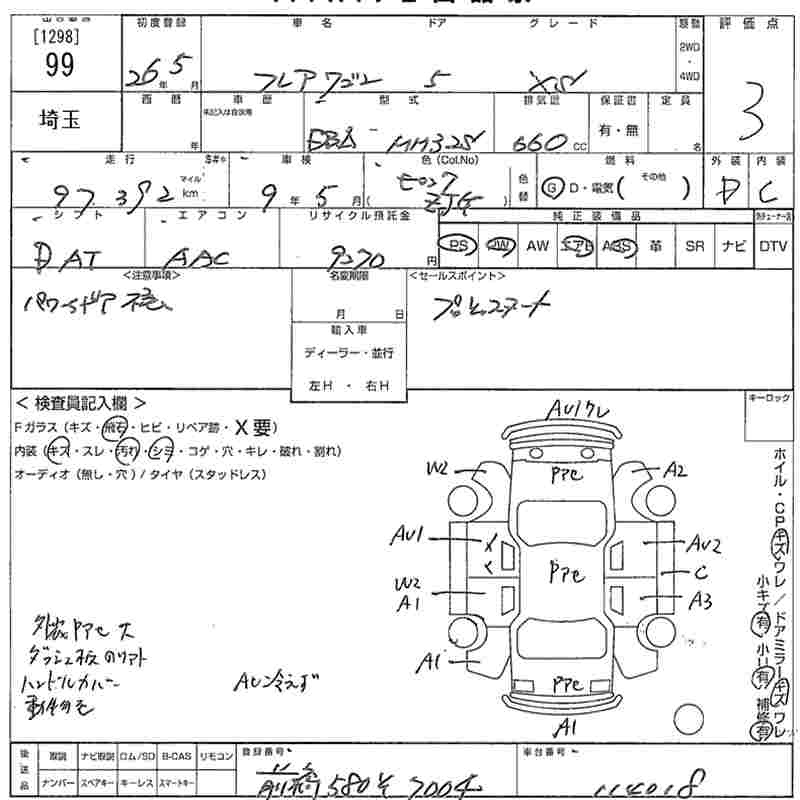 [1298]
99
初度登録 車名 ドア グレード 駆動 評価点
26年 5月 フレアワゴン 5 XS 2WD・4WD 3
埼玉
西暦 車歴 型式 排気量 保証書 定員
年 未記入は自家用 DBA- MM32S 660 CC 有・無 名
走行 車検 色(Col.No) 燃料 外装 内装
97,392 マイル km 9年 5月 ZJ4 色替 Ⓖ D・電気( その他 ) D C
シフト エアコン リサイクル預託金 純正装備品
DAT AAC 9270円 PS PW AW エアB ABS 革 SR ナビ DTV
<注意事項> 名変期限 <セールスポイント>
パワードア 月 日 プッシュスタート
輸入車
ディーラー・並行
左H ・ 右H
キーロック
< 検査員記入欄 >
Fガラス(キズ・飛石・ヒビ・リペア跡・X要)
内装(キズ・スレ・汚れ・シミ・コゲ・穴・キレ・破れ・割れ)
オーディオ(無し・穴)/タイヤ(スタッドレス)
AU1ワレ
W2 PPC A2
AU1 AU2
PPC C
W2
A1 A3
A1 PPC
A1
外装PPC大
ダッシュ板のリフト
ハンドルカバー
AC冷えず
ホイル・CPキズワレ/ドアミラーキズワレ
小キズ有 小凹有 補修有
後送品 取説 ナビ取説 ロム/SD B-CAS リモコン
ナンバー スペアキー キーレス スマートキー
登録番号 車台番号
前橋 580 そ 7004 114018